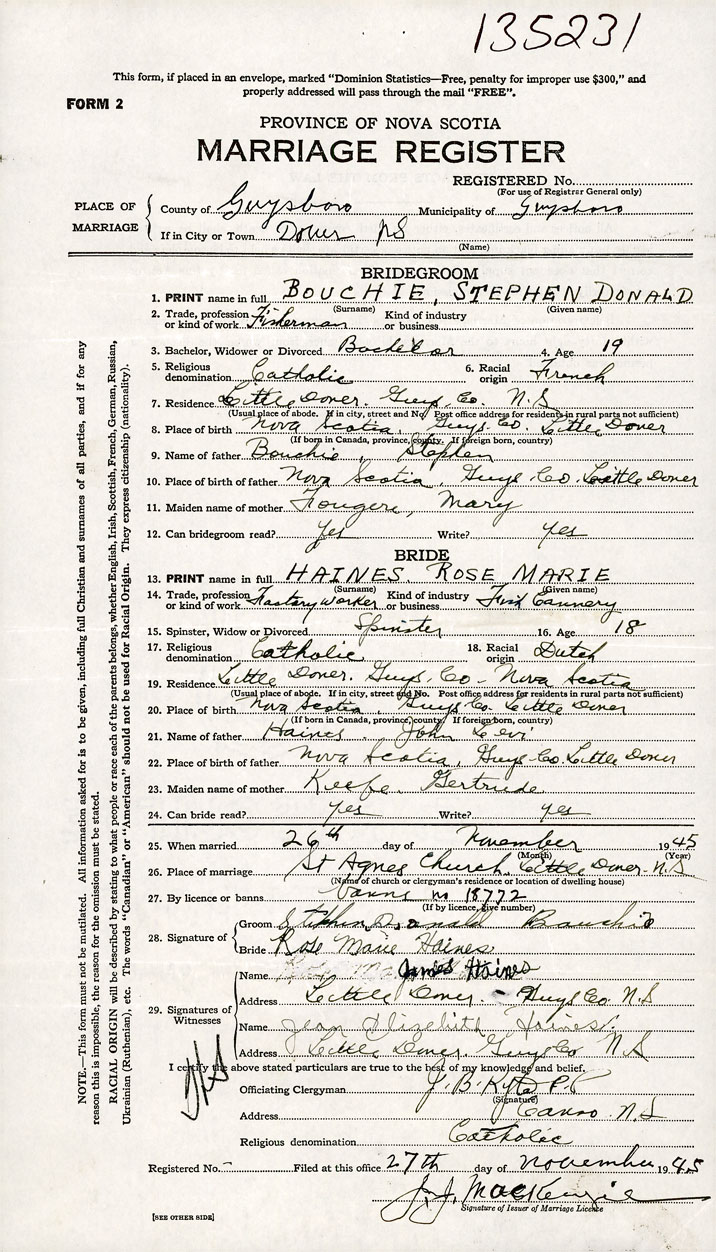 135231
This form, if placed in an envelope, marked "Dominion Statistics—Free, penalty for improper use $300," and
properly addressed will pass through the mail "FREE".
FORM 2
PROVINCE OF NOVA SCOTIA
MARRIAGE REGISTER
REGISTERED No.
(For use of Registrar General only)
PLACE OF MARRIAGE
County of Guysboro Municipality of Guysboro
If in City or Town Dover NS
(Name)
BRIDEGROOM
1. PRINT name in full BOUCHIE, STEPHEN DONALD
(Surname) (Given name)
2. Trade, profession or kind of work Fisherman Kind of industry or business
3. Bachelor, Widower or Divorced Bachelor 4. Age 19
5. Religious denomination Catholic 6. Racial origin French
7. Residence Little Dover. Guys. Co. N.S
(Usual place of abode. If in city, street and No. Post office address for residents in rural parts not sufficient)
8. Place of birth Nova Scotia, Guys Co. Little Dover
(If born in Canada, province, county. If foreign born, country)
9. Name of father Bouchie, Stephen
10. Place of birth of father Nova Scotia, Guys Co. Little Dover
11. Maiden name of mother Fougere, Mary
12. Can bridegroom read? yes Write? yes
BRIDE
13. PRINT name in full HAINES ROSE MARIE
(Surname) (Given name)
14. Trade, profession or kind of work Factory worker Kind of industry or business Fish Cannery
15. Spinster, Widow or Divorced Spinster 16. Age 18
17. Religious denomination Catholic 18. Racial origin Dutch
19. Residence Little Dover. Guys. Co - Nova Scotia
(Usual place of abode. If in city, street and No. Post office address for residents in rural parts not sufficient)
20. Place of birth Nova Scotia, Guys Co. Little Dover
(If born in Canada, province, county If foreign born, country)
21. Name of father Haines, John Levi
22. Place of birth of father Nova Scotia, Guys Co. Little Dover
23. Maiden name of mother Keefe, Gertrude
24. Can bride read? yes Write? yes
25. When married 26th day of November 1945
(Month) (Year)
26. Place of marriage St Agnes Church. Little Dover. N.S
(Name of church or clergyman's residence or location of dwelling house)
27. By licence or banns Banns no 18772
(If by licence, give number)
28. Signature of
Groom Stephen Donald Bouchie
Bride Rose Marie Haines
29. Signatures of Witnesses
Name James Haines
Address Little Dover - Guys Co. N.S
Name Jean Elizabeth Haines.
Address Little Dover. Guys Co N.S
I certify the above stated particulars are true to the best of my knowledge and belief.
Officiating Clergyman J. B. Kyte P.P.
(Signature)
Address Canso N.S
Religious denomination Catholic
Registered No. - Filed at this office 27th day of November 1945
J. J. MacKenzie
Signature of Issuer of Marriage Licence
[SEE OTHER SIDE]
NOTE.—This form must not be mutilated. All information asked for is to be given, including full Christian and surnames of all parties, and if for any
reason this is impossible, the reason for the omission must be stated.
RACIAL ORIGIN will be described by stating to what people or race each of the parents belongs, whether English, Irish, Scottish, French, German, Russian,
Ukrainian (Ruthenian), etc. The words "Canadian" or "American" should not be used for Racial Origin. They express citizenship (nationality).